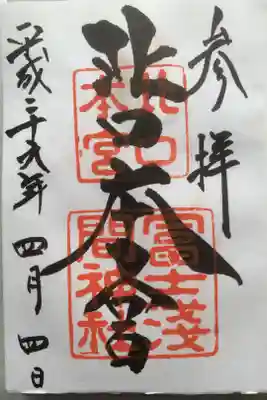 参拝
北口本宮
北口
本宮
冨士浅
間神社
平成二十九年四月四日